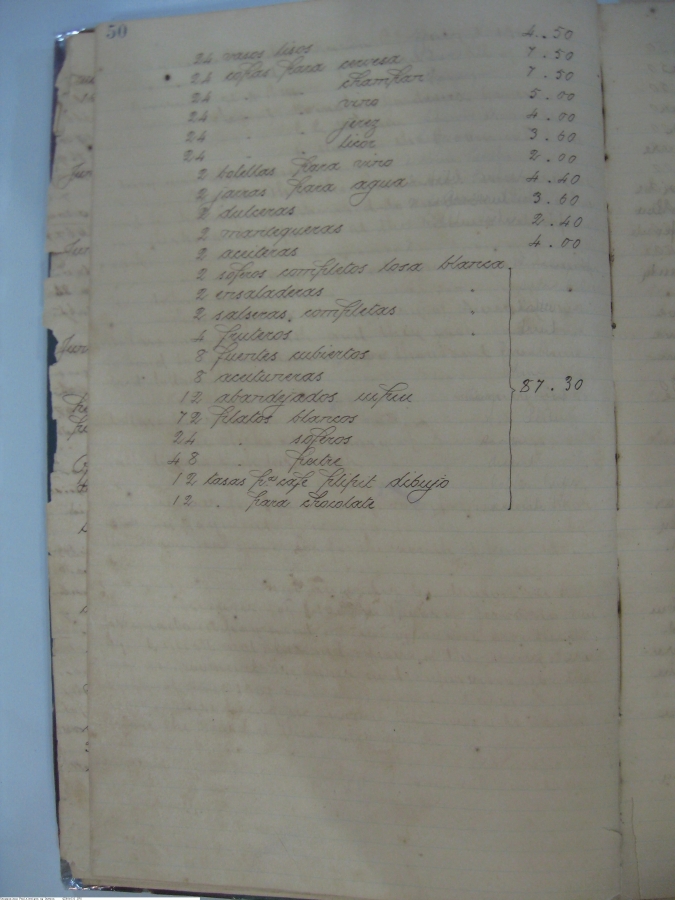 50
24 vasos lisos 4.50
24 copas para cervesa 7.50
24 " " champan 7.50
24 " " vino 5.00
24 " " jerez 4.00
24 " " licor 3.60
2 botellas para vino 2.00
2 jarras para agua 4.40
2 dulceras 3.60
2 mantequeras 2.40
2 aceiteras 4.00
2 soperos completos losa blanca
2 ensaladeras "
2 salseras completas "
4 fruteros "
8 fuentes cubiertos
8 aceituneras
12 abandejados 87.30
72 platos blancos
24 " soperos
48 " postre
12 tasas pra cafe filipit dibujo
12 " para chocolate